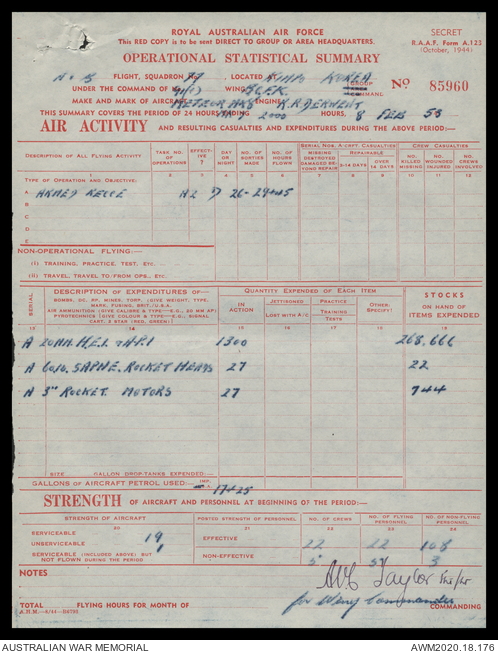 ROYAL AUSTRALIAN AIR FORCE
This RED COPY is to be sent DIRECT TO GROUP OR AREA HEADQUARTERS.
SECRET
R.A.A.F. Form A.123
(October, 1944)
OPERATIONAL STATISTICAL SUMMARY
FLIGHT, SQUADRON 77 LOCATED AT KIMPO KOREA
No 85960
UNDER THE COMMAND OF GROUP COMMAND
MAKE AND MARK OF AIRCRAFT METEOR MK8 ENGINES R.R DERWENT
THIS SUMMARY COVERS THE PERIOD OF 24 HOURS ENDING AT 2000 HOURS, 8 FEB 53
AIR ACTIVITY AND RESULTING CASUALTIES AND EXPENDITURES DURING THE ABOVE PERIOD:—
DESCRIPTION OF ALL FLYING ACTIVITY
TASK NO. OF OPERATIONS
EFFECTIVE
DAY OR NIGHT
NO. OF SORTIES MADE
NO. OF HOURS FLOWN
SERIAL NOS. A-CRFT. CASUALTIES
MISSING DESTROYED DAMAGED BEYOND REPAIR
REPAIRABLE
OVER 14 DAYS
CREW CASUALTIES
NO. KILLED MISSING
NO. WOUNDED INJURED
NO. CREWS INVOLVED
1 2 3 4 5 6 7 8 9 10 11 12
TYPE OF OPERATION AND OBJECTIVE:
A ARMED RECCE D 26
B
C
D
E
NON-OPERATIONAL FLYING:—
(i) TRAINING, PRACTICE, TEST, ETC.—
(ii) TRAVEL, TRAVEL TO/FROM OPS., ETC.—
SERIAL
DESCRIPTION OF EXPENDITURES OF—
BOMBS, DC, RP, MINES, TORP. (GIVE WEIGHT, TYPE, MARK, FUSING, BRIT./U.S.A.
AIR AMMUNITION (GIVE CALIBRE & TYPE—E.G., 20 MM AP)
PYROTECHNICS (GIVE COLOUR & TYPE—E.G., SIGNAL CART. 2 STAR (RED, GREEN))
QUANTITY EXPENDED OF EACH ITEM
IN ACTION
JETTISONED
LOST WITH A/C
PRACTICE
TRAINING
TESTS
OTHER: SPECIFY:
STOCKS
ON HAND OF ITEMS EXPENDED
13 14 15 16 17 18 19
A 20MM. H.E.I. & A.P.I 1300 268,666
A 60LB. SAPHE. ROCKET HEADS 27 22
A 3" ROCKET MOTORS 27 744
SITE GALLON DROP-TANKS EXPENDED:—
GALLONS OF AIRCRAFT PETROL USED:— IMP.
STRENGTH OF AIRCRAFT AND PERSONNEL AT BEGINNING OF THE PERIOD:—
STRENGTH OF AIRCRAFT
POSTED STRENGTH OF PERSONNEL
NO. OF CREWS
NO. OF FLYING PERSONNEL
NO. OF NON-FLYING PERSONNEL
20 21 22 23 24
SERVICEABLE 19
UNSERVICEABLE 1
SERVICEABLE (INCLUDED ABOVE) BUT NOT FLOWN DURING THE PERIOD
EFFECTIVE 22 22 108
NON-EFFECTIVE 5 5 3
NOTES
Taylor
TOTAL FLYING HOURS FOR MONTH OF
for Wing Commander COMMANDING
AUSTRALIAN WAR MEMORIAL
AWM2020.18.176